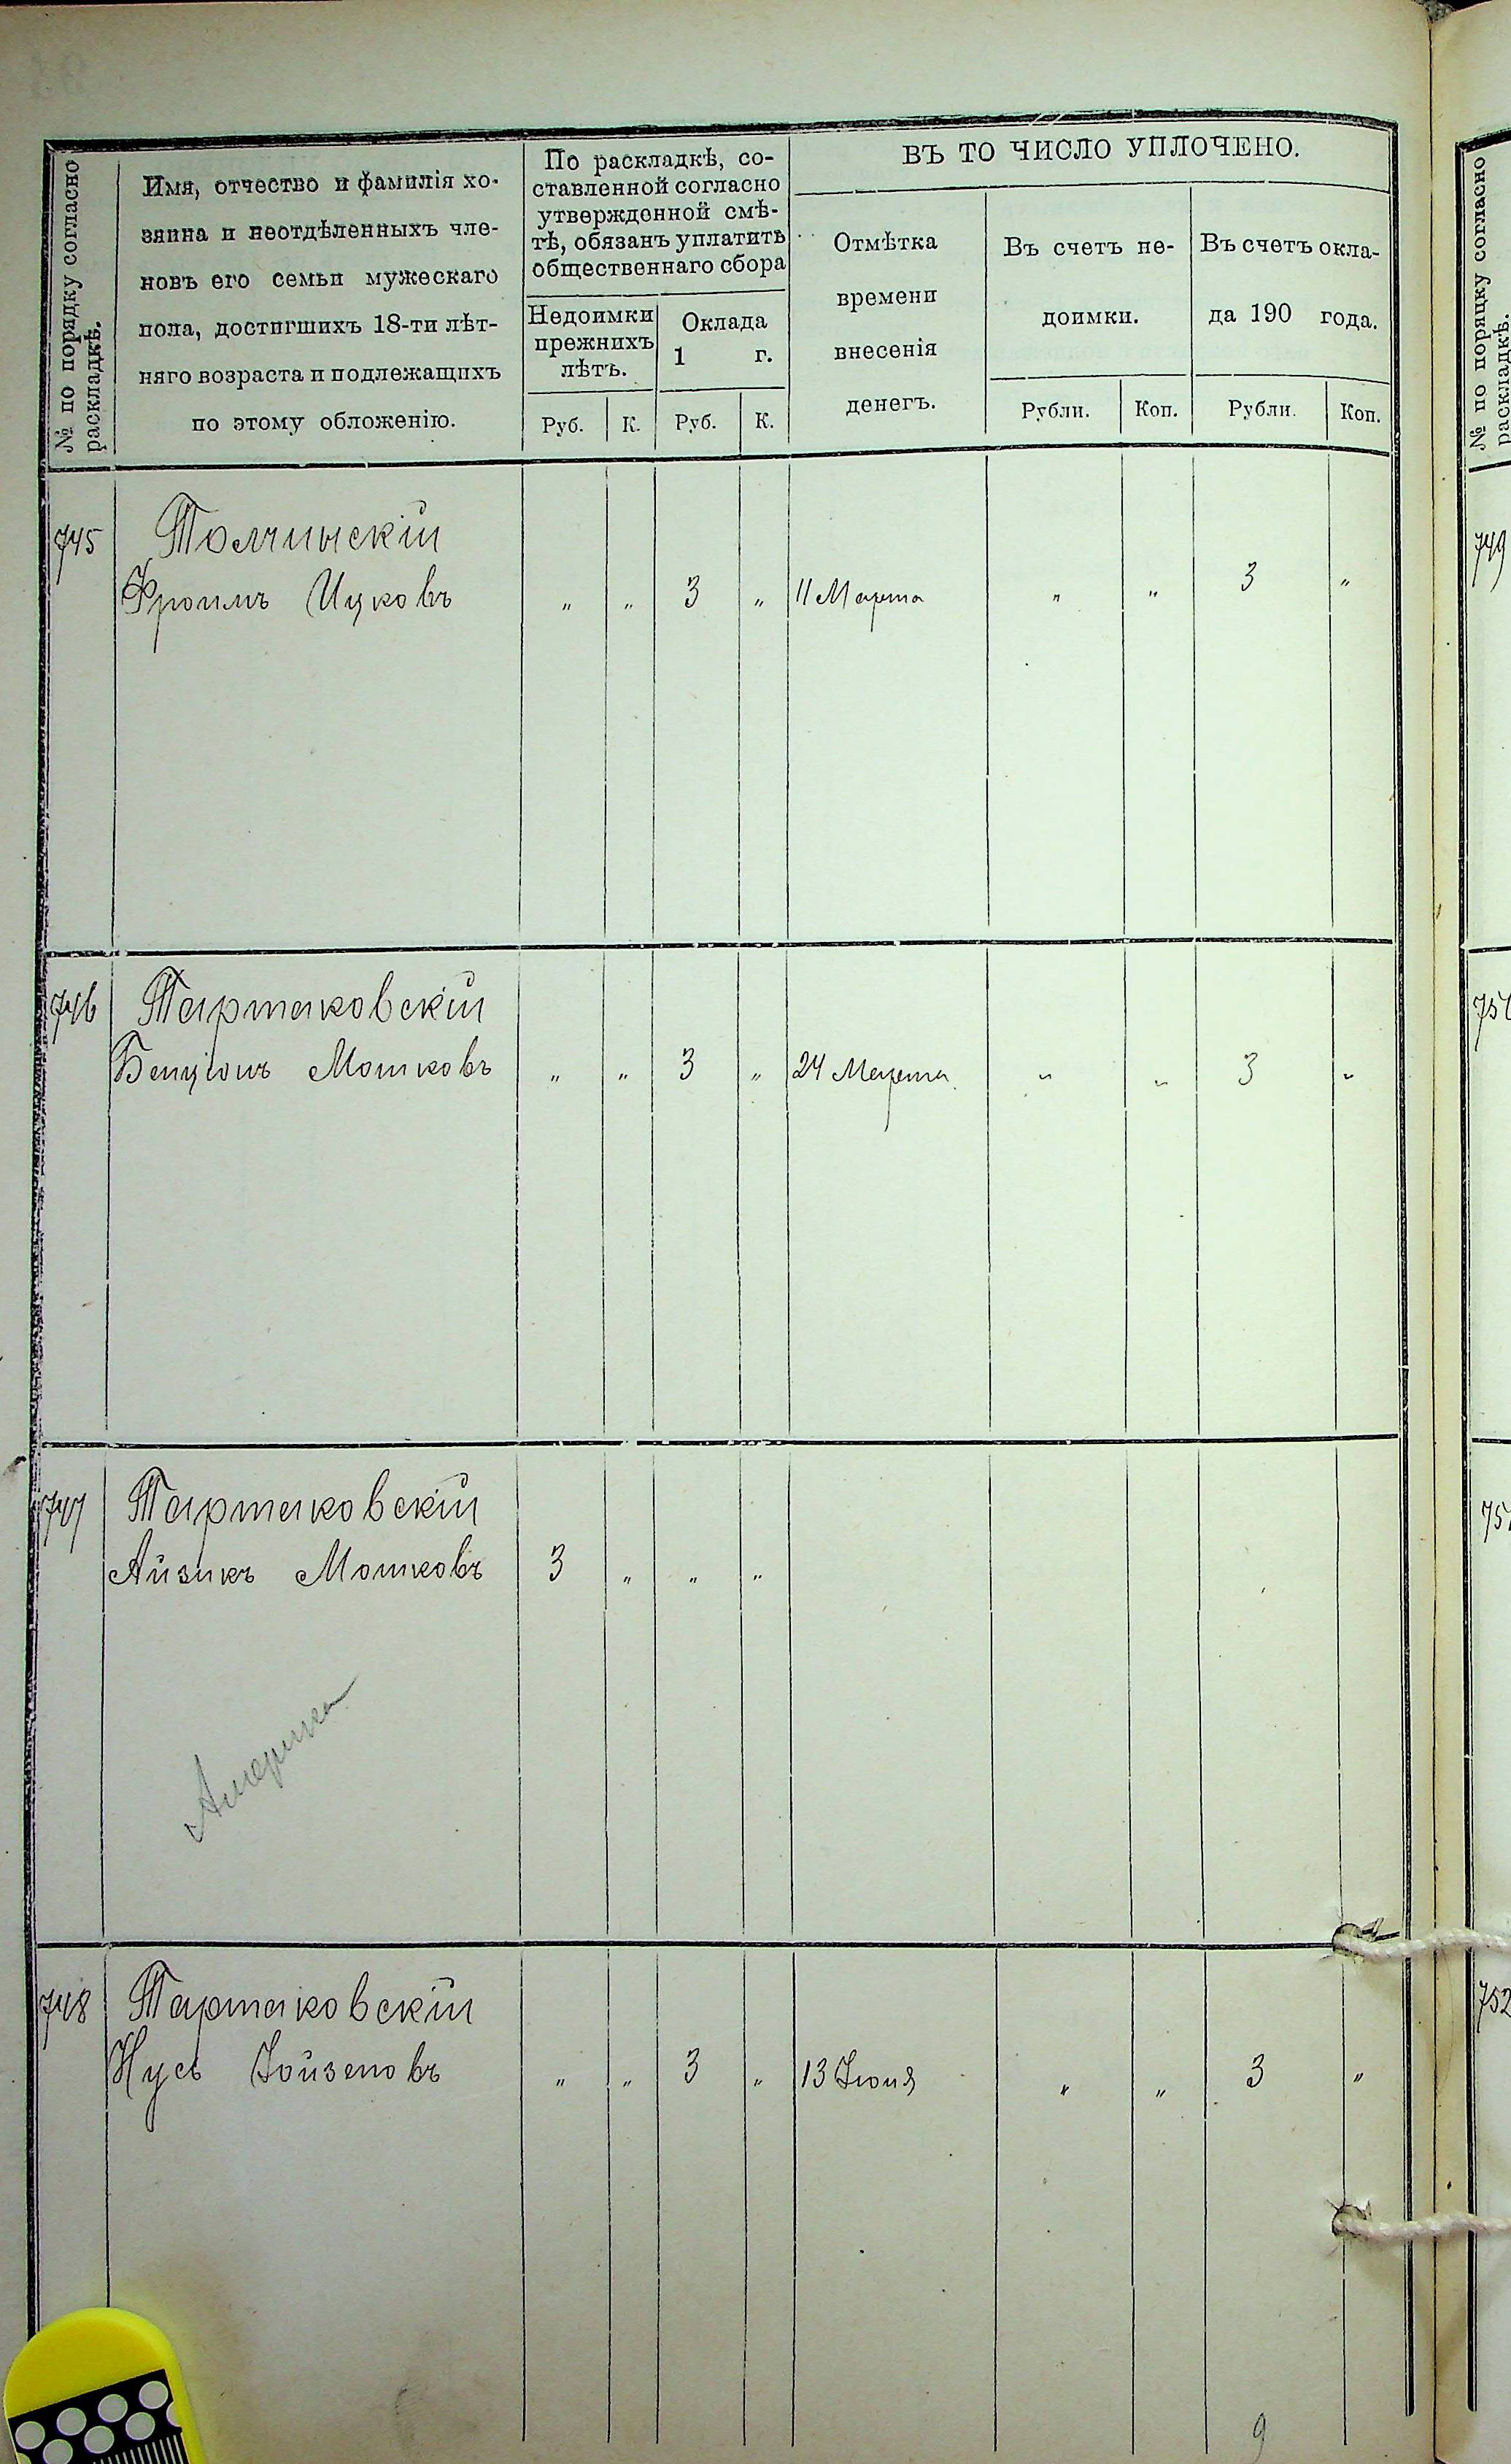 № по порядку согласно
раскладкѣ.
Имя, отчество и фамилія хо-
зяина и неотдѣленныхъ чле-
новъ его семьи мужескаго
пола, достигшихъ 18-ти лѣт-
няго возраста и подлежащихъ
по этому обложенію.
По раскладкѣ, со-
ставленной согласно
утвержденной смѣ-
тѣ, обязанъ уплатить
общественнаго сбора
Недоимки
прежнихъ
лѣтъ.
Оклада
1 г.
Руб. К. Руб. К.
ВЪ ТО ЧИСЛО УПЛОЧЕНО.
Отмѣтка
времени
внесенія
денегъ.
Въ счетъ не-
доимки.
Рубли. Коп.
Въ счетъ окла-
да 190 года.
Рубли. Коп.
745 Толчинскій
Фроимъ Ицковъ " " 3 " 11 Марта " " 3 "
746 Тартаковскій
Бенціонъ Мошковъ " " 3 " 24 Марта " " 3 "
747 Тартаковскій
Айзикъ Мошковъ 3 " " "
Америка
748 Тартаковскій
Нусь Іойзеповъ " " 3 " 13 Іюня " " 3 "
9
№ по порядку согласно
раскладкѣ.
749
752